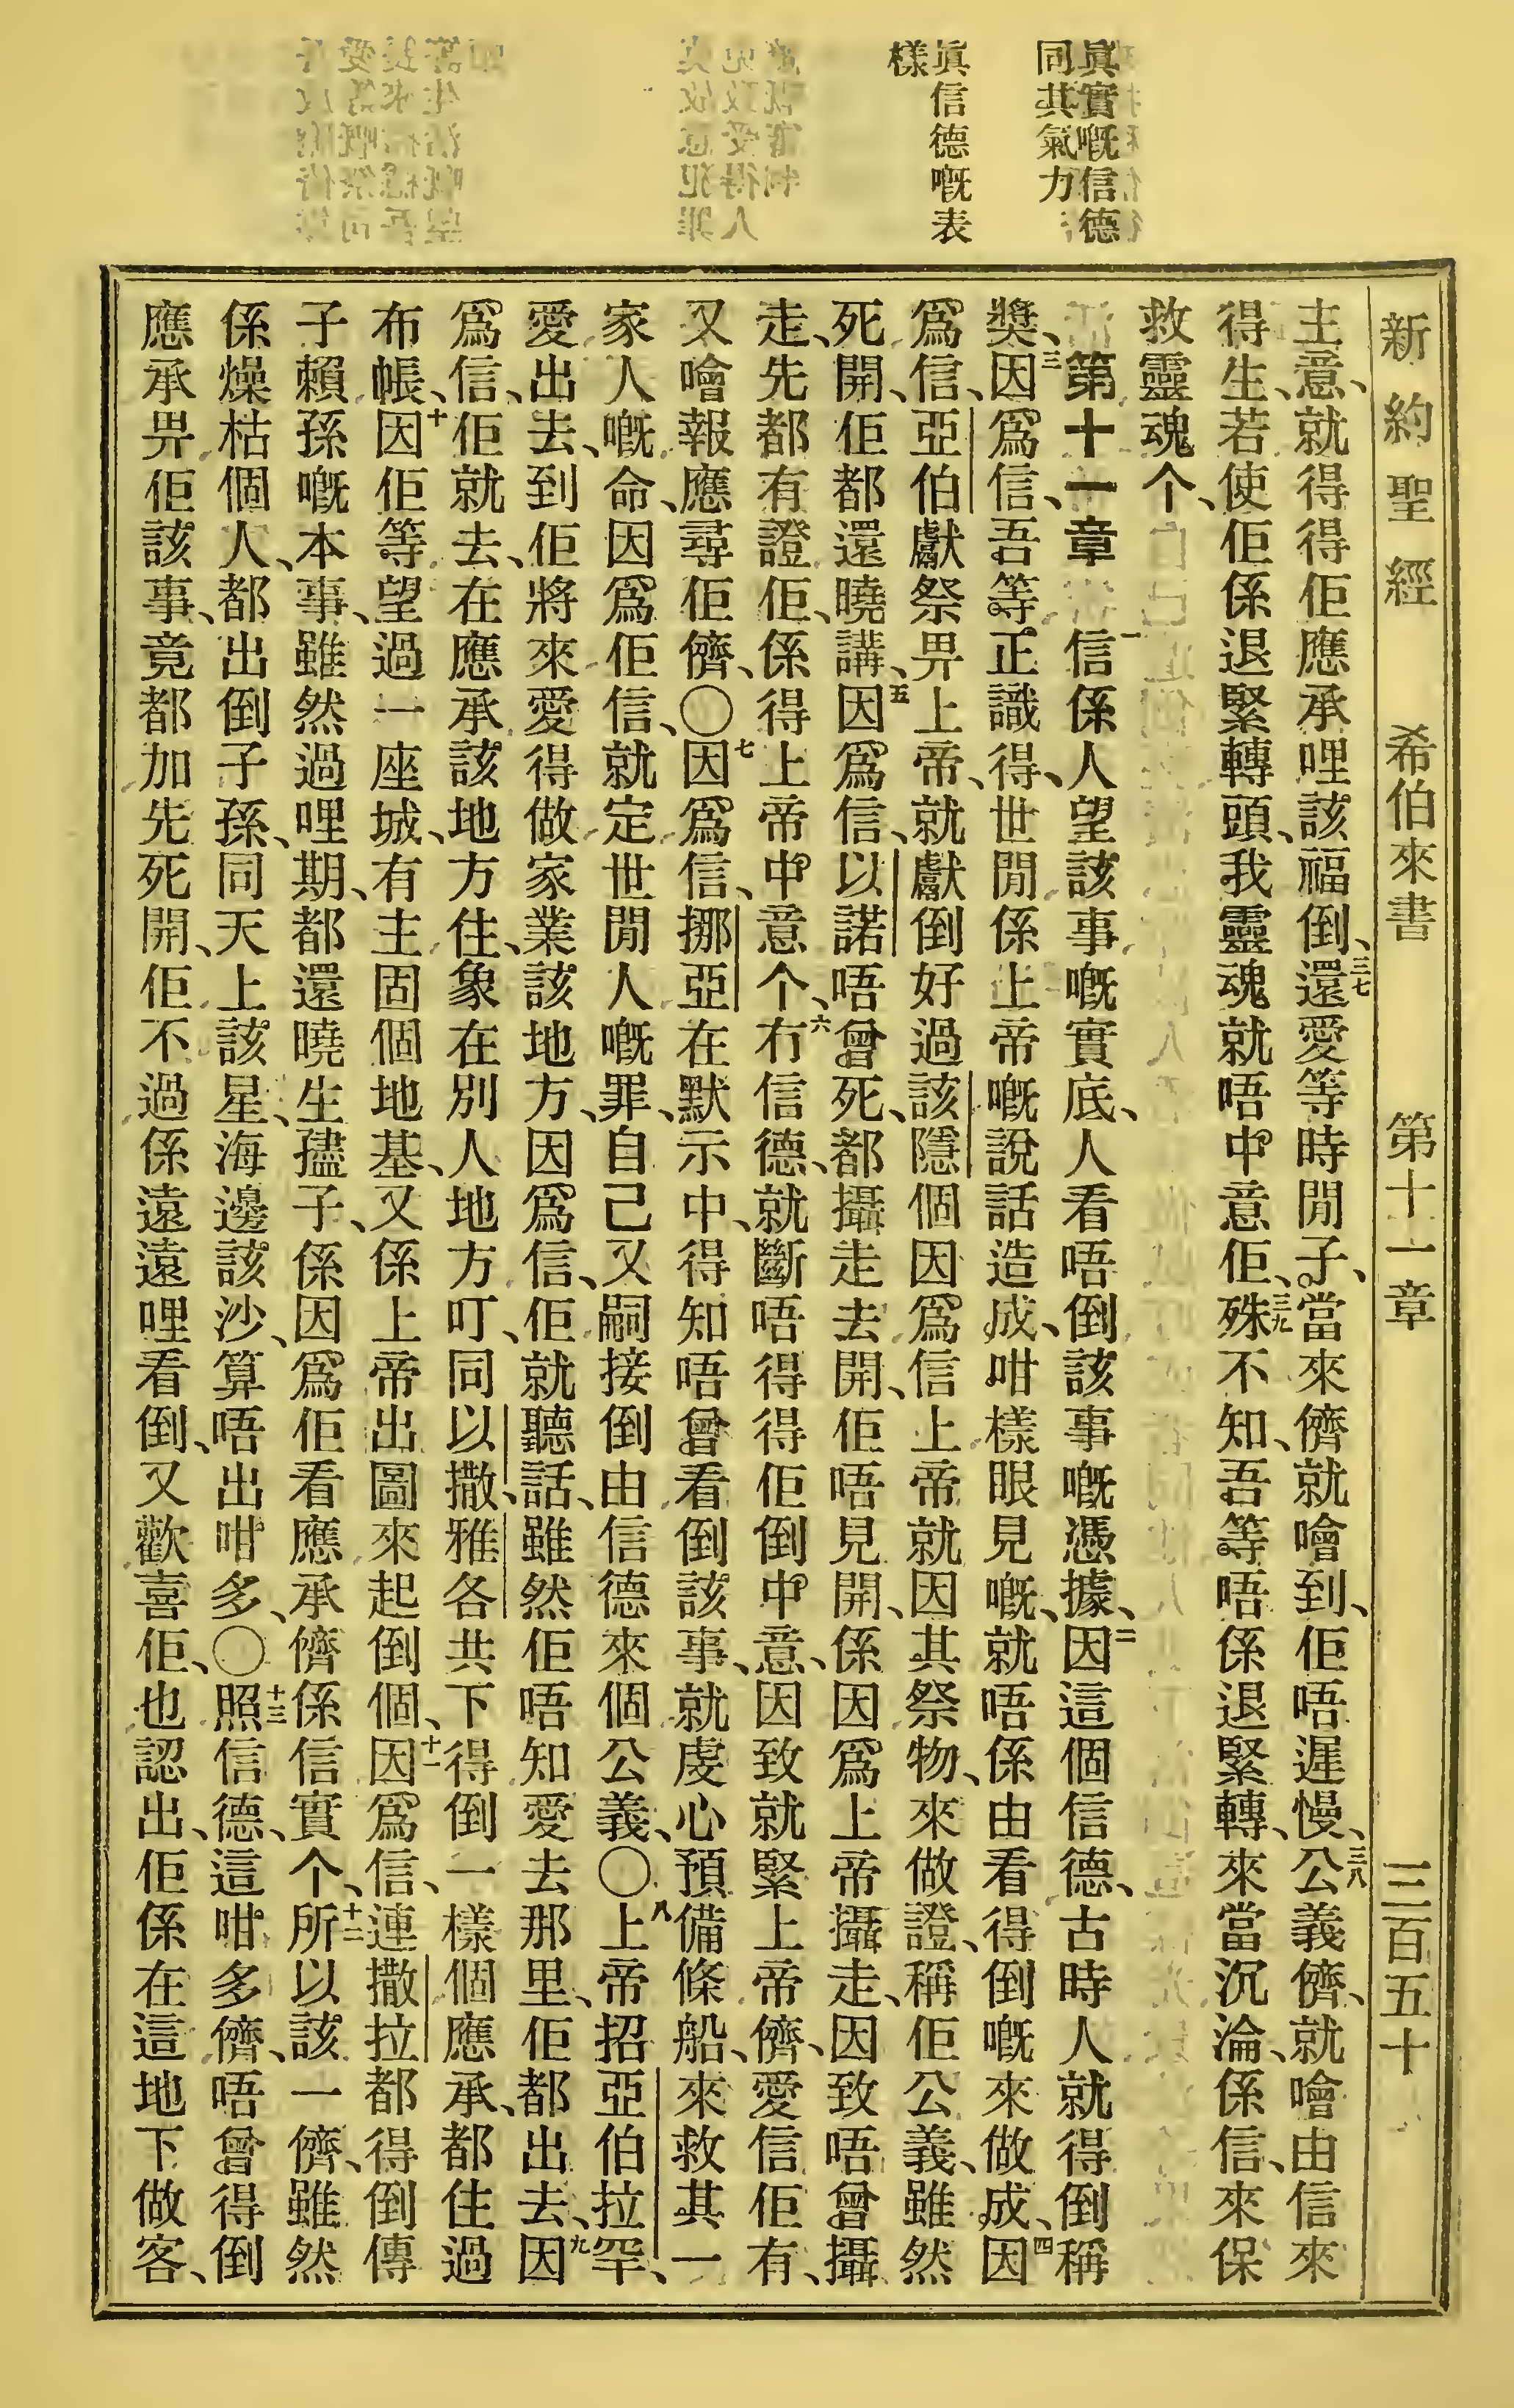 眞實嘅信德
同其氣力
眞信德嘅表
樣
新約聖經 希伯來書 第十一章 三百五十
主意、就得得佢應承哩該福倒、三七還愛等時閒子、當來儕就噲到、佢唔遲慢、三八公義儕、就噲由信來
得生、若使佢係退緊轉頭、我靈魂就唔中意佢、三九殊不知、吾等唔係退緊轉、來當沉淪、係信、來保
救靈魂个、
第十一章 一信係人望該事嘅實底、人看唔倒該事嘅憑據、二因這個信德、古時人就得倒稱
獎、三因爲信、吾等正識得、世閒係上帝嘅說話造成、咁樣眼見嘅、就唔係由看得倒嘅來做成、四因
爲信、亞伯獻祭畀上帝、就獻倒好過該隱個、因爲信上帝就因其祭物、來做證、稱佢公義、雖然
死開、佢都還曉講、五因爲信、以諾唔曾死、都攝走去開、佢唔見開、係因爲上帝攝走、因致唔曾攝
走、先都有證佢、係得上帝中意个、六冇信德、就斷唔得得佢倒中意、因致就緊上帝儕、愛信佢有、
又噲報應尋佢儕、〇七因爲信、挪亞在默示中、得知唔曾看倒該事、就虔心預備條船、來救其一
家人嘅命、因爲佢信、就定世閒人嘅罪、自己又嗣接倒由信德來個公義、〇八上帝招亞伯拉罕、
愛出去、到佢將來愛得做家業該地方、因爲信、佢就聽話、雖然佢唔知愛去那里、佢都出去、九因
爲信、佢就去、在應承該地方住、象在別人地方叮、同以撒、雅各共下得倒一樣個應承、都住過
布帳、十因佢等望過一座城、有主固個地基、又係上帝出圖來起倒個、十一因爲信、連撒拉都得倒傳
子賴孫嘅本事、雖然過哩期、都還曉生孻子、係因爲佢看應承儕係信實个、十二所以該一儕、雖然
係燥枯個人、都出倒子孫、同天上該星、海邊該沙、算唔出咁多、〇十三照信德、這咁多儕、唔曾得倒
應承畀佢該事、竟都加先死開、佢不過係遠遠哩看倒、又歡喜佢、也認出、佢係在這地下做客、